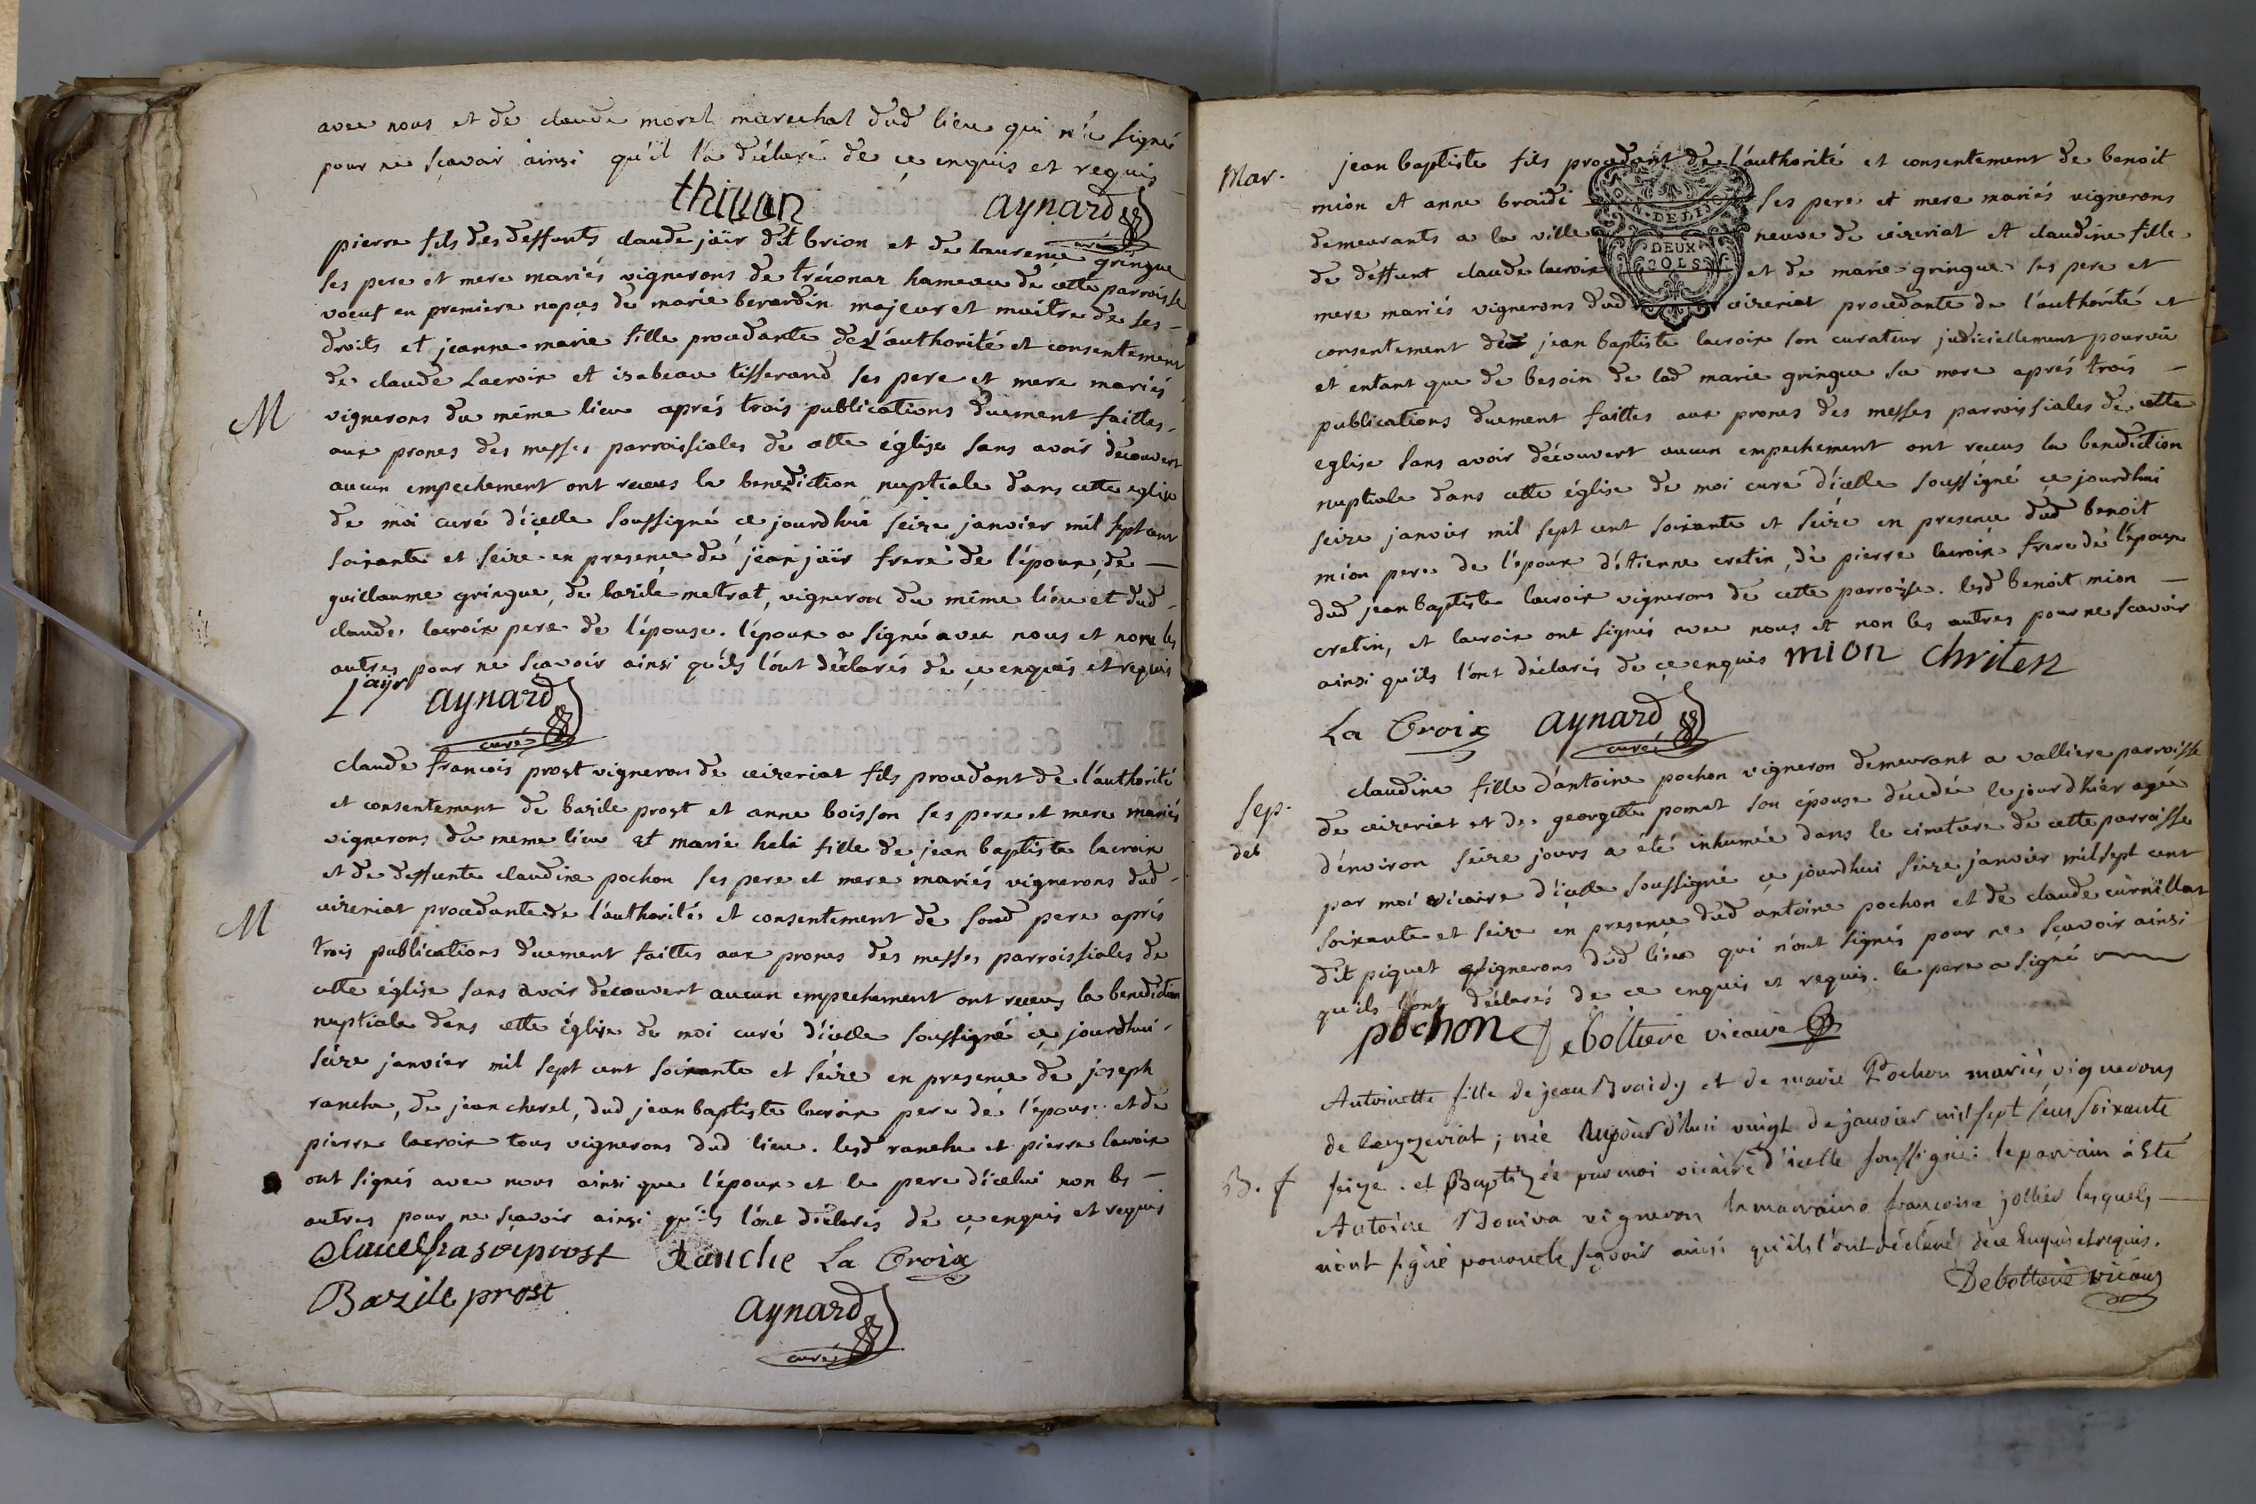 avec nous et de claude morel marechal dud lieu qui n'a signé
pour ne sçavoir ainsi qu'il l'a déclaré de ce enquis et requis
thivan aynard
curé
pierre fils des deffunts claude jaïr dit brion et de laurence gringue
ses pere et mere mariés vignerons de tréconar hameau de cette parroisse
voeuf en premiere nopces de marie berardin majeur et maitre de ses
droits et jeanne marie fille procedante de l'authorité et consentement
de claude Lacroix et isabeau tisserand ses pere et mere mariés
M
vignerons du même lieu aprés trois publications duement faittes
aux prones des messes parroissiales de cette église sans avoir découvert
aucun empechement ont recues la benediction nuptiale dans cette eglise
de moi curé d'icelle soussigné ce jourdhui seize janvier mil sept cent
soixante et seize en presence de jean jaïr frere de l'époux, de
guillaume gringue, de bazile metrat, vigneron du même lieu et dud
claude lacroix pere de l'épouse. l'époux a signé avec nous et non les
autres pour ne sçavoir ainsi qu'ils l'ont déclarés de ce enquis et requis
jaÿr aynard
curé
claude francois prost vigneron de ceizeriat fils procedant de l'authorité
et consentement de bazile prost et anne boisson ses pere et mere mariés
vignerons du meme lieu et marie fille de jean baptiste lacroix
et de deffunte claudine pochon ses pere et mere mariés vignerons dud
M
ceizeriat procedante de l'authorité et consentement de sond pere aprés
trois publications duement faittes aux prones des messes parroissiales de
cette église sans avoir decouvert aucun empechement ont receus la benediction
nuptiale dans cette église de moi curé d'icelle soussigné ce jourdhui
seize janvier mil sept cent soixante et seize en presence de joseph
ranche, de jean cherel, dud jean baptiste lacroix pere de l'épouse et de
pierre lacroix tous vignerons dud lieu. lesd ranche et pierre lacroix
ont signés avec nous ainsi que l'époux et le pere d'icelui non les
autres pour ne sçavoir ainsi qu'ils l'ont déclarés de ce enquis et requis
Ranche La Croix
Bazile prost
aynard
curé
Mar.
jean baptiste fils procedant de l'authorité et consentement de benoit
mion et anne braidi ses pere et mere mariés vignerons
demeurants a la ville neuve de ceizeriat et claudine fille
DEUX
SOLS
de deffunt claude lacroix et de marie gringue ses pere et
mere mariés vignerons dud ceizeriat procedante de l'authorité et
consentement de jean baptiste lacroix son curateur judiciellement pourvû
et entant que de besoin de lad marie gringue sa mere aprés trois
publications duement faittes aux prones des messes parroissiales de cette
eglise sans avoir découvert aucun empechement ont recues la benediction
nuptiale dans cette église de moi curé d'icelle soussigné ce jourdhui
seize janvier mil sept cent soixante et seize en presence dud benoit
mion pere de l'époux d'étienne cretin, de pierre lacroix frere de l'épouse
dud jean baptiste lacroix vignerons de cette parroisse. lesd benoit mion
cretin, et lacroix ont signés avec nous et non les autres pour ne scavoir
ainsi qu'ils l'ont déclarés de ce enquis mion chriten
La Croix aynard
curé
Sep.
claudine fille d'antoine pochon vigneron demeurant a valliere parroisse
de ceizeriat et de georgette pomat son épouse decedée le jourdhier agée
d'environ seize jours a eté inhumée dans le cimetiere de cette parroisse
par moi vicaire d'icelle soussigné ce jourdhui seize janvier mil sept cent
soixante et seize en presence dud antoine pochon et de claude
dit piquet vignerons dud lieu qui n'ont signés pour ne sçavoir ainsi
qu'ils l'ont déclarés de ce enquis et requis. le pere a signé
pochon Debottiere vicaire
Antoinette fille de jean Braidy et de marie Pochon mariés vignerons
de ceyzeriat; née Aujourd'hui vingt de janvier mil sept sens soixante
B. f
seize. et Baptizée par moi vicaire d'icelle soussigné: le parrain à Eté
Antoine vigneron la marraine francoise jollier lesquels
n'ont signé pour ne sçavoir ainsi qu'ils l'ont déclaré de ce Enquis et requis.
Debottiere vicaire